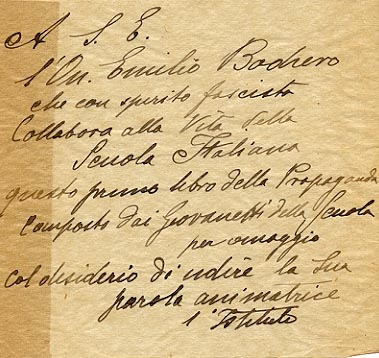 A S. E.
l'On. Emilio Bodrero
che con spirito fascista
Collabora alla Vita della
Scuola Italiana
questo primo libro della Propaganda
composto dai Giovanetti della Scuola
per omaggio
col disiderio di udire la Sua
parola animatrice
l'Istituto